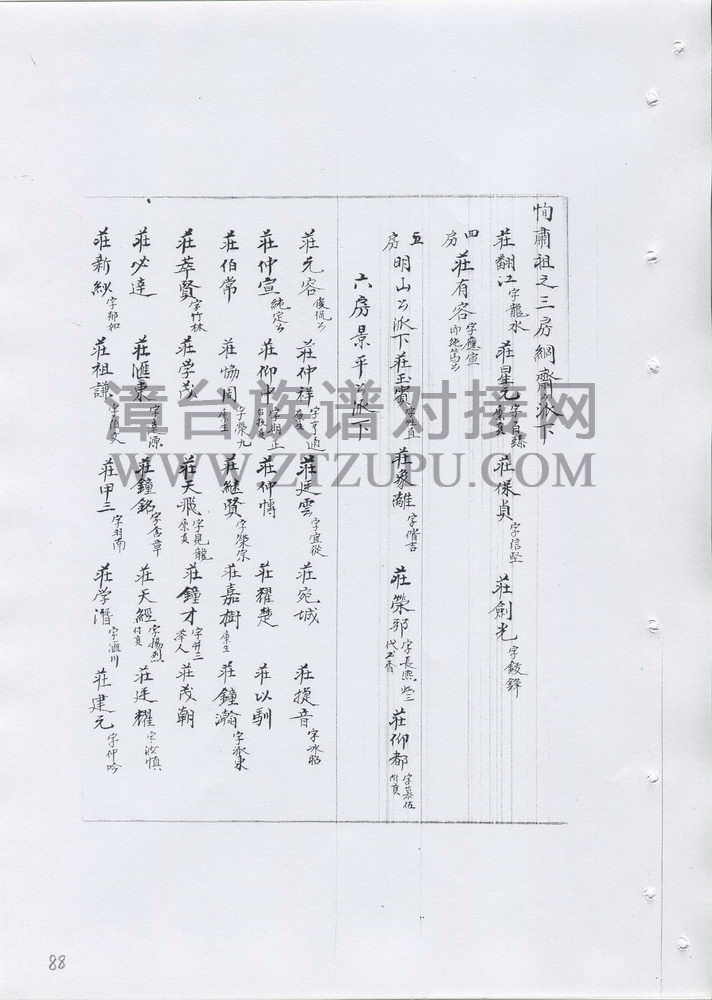 恂肅祖之三房綱齋公派下
莊翻江字龍水 莊星元字百 莊保貞字信堅 莊劍光字鋒
四房 莊有容字應宣即純篤公
五房 明山公派下莊玉賓字直 莊象離字階吉 莊榮邦字長熙 莊仰都字慕佐附貢
六房景平公派下
莊元容俊侃公 莊仲祥字亨 莊廷雲字宜從 莊宛城 莊捷音字冰昭
莊仲宣純定公 莊仰中字期正 莊仲慱 莊耀楚 莊以馴
莊伯常 莊協周字榮九 莊継賢字榮宗 莊嘉樹庠生 莊鐘瀚字派東
莊萃賢字竹林 莊学茂 莊天飛字見龍 莊鐘才字廾二舉人 莊茂朝
莊必達 莊滙東字逢源 莊鐘銘字含章 莊天經字揚烈付貢 莊廷耀字汝慎
莊新紗字郁如 莊祖謙字文 莊甲三字羽南 莊学潛字滙川 莊建元字仲吟
漳台族谱对接网
WWW.ZTZUPU.COM
88